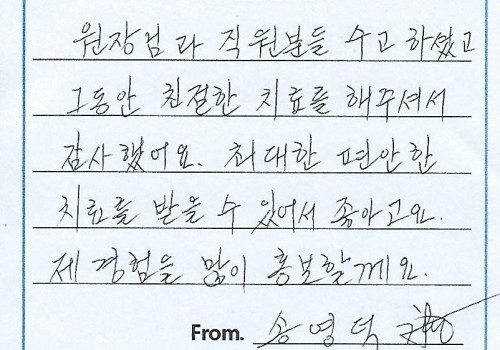 원장님과 직원분들 수고하셨고
그동안 친절한 치료를 해주셔서
감사했어요. 최대한 편안한
치료를 받을 수 있어서 좋아고요.
제 경험을 많이 홍보할께요.
From. 송영덕